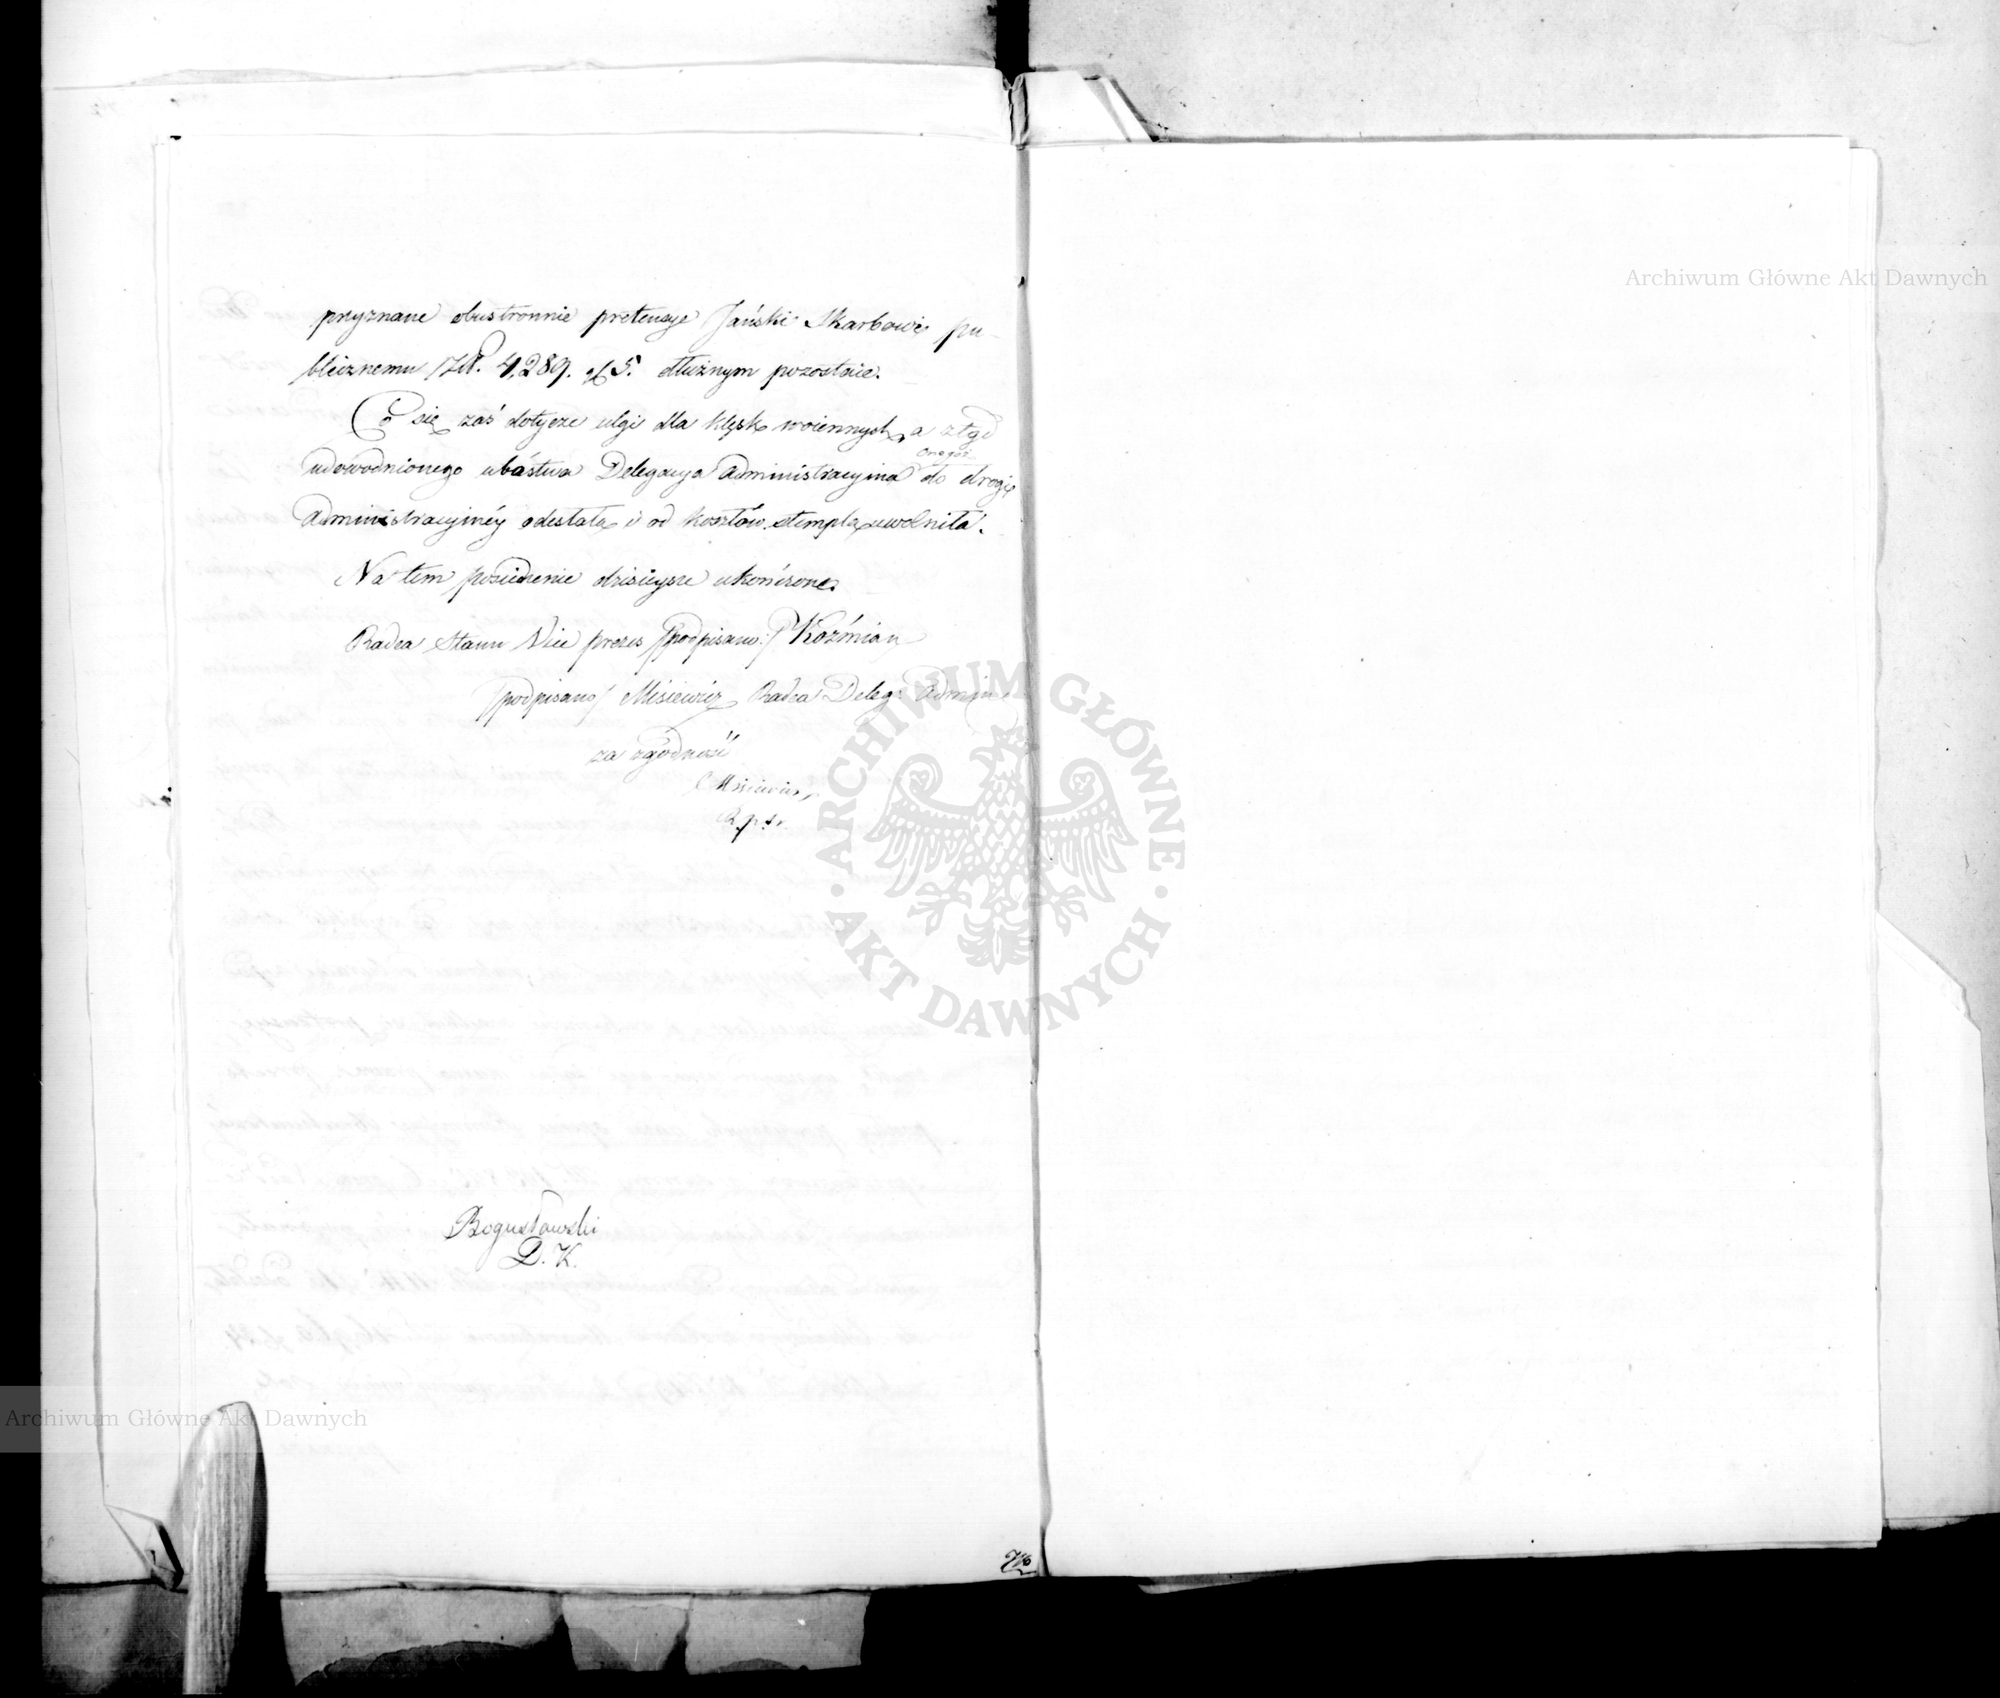 Archiwum Główne Akt Dawnych
przyznane obustronnie pretensye Jański Skarbowi pu-
blicznemu Złł. 4,289. gſ 5. dłużnym pozostaie.
Co się zaś dotycze ulgi dla klęsk woiennych, a ztąd
onegoż
udowodnionego ubóstwa Delegacya Administracyina do drogi
Administracyinéy odesłała i od kosztów stempla uwolniła.
Na tem posiedzenie dzisieysze ukończone.
Radca Stanu Vice prezes /podpisano:/ Koźmian
/podpisano/ Misiewicz Radca Deleg: Admin:
za zgodność
Misiewicz
ARCHIWUM GŁÓWNE AKT DAWNYCH
Bogusławski
D. K.
Archiwum Główne Akt Dawnych